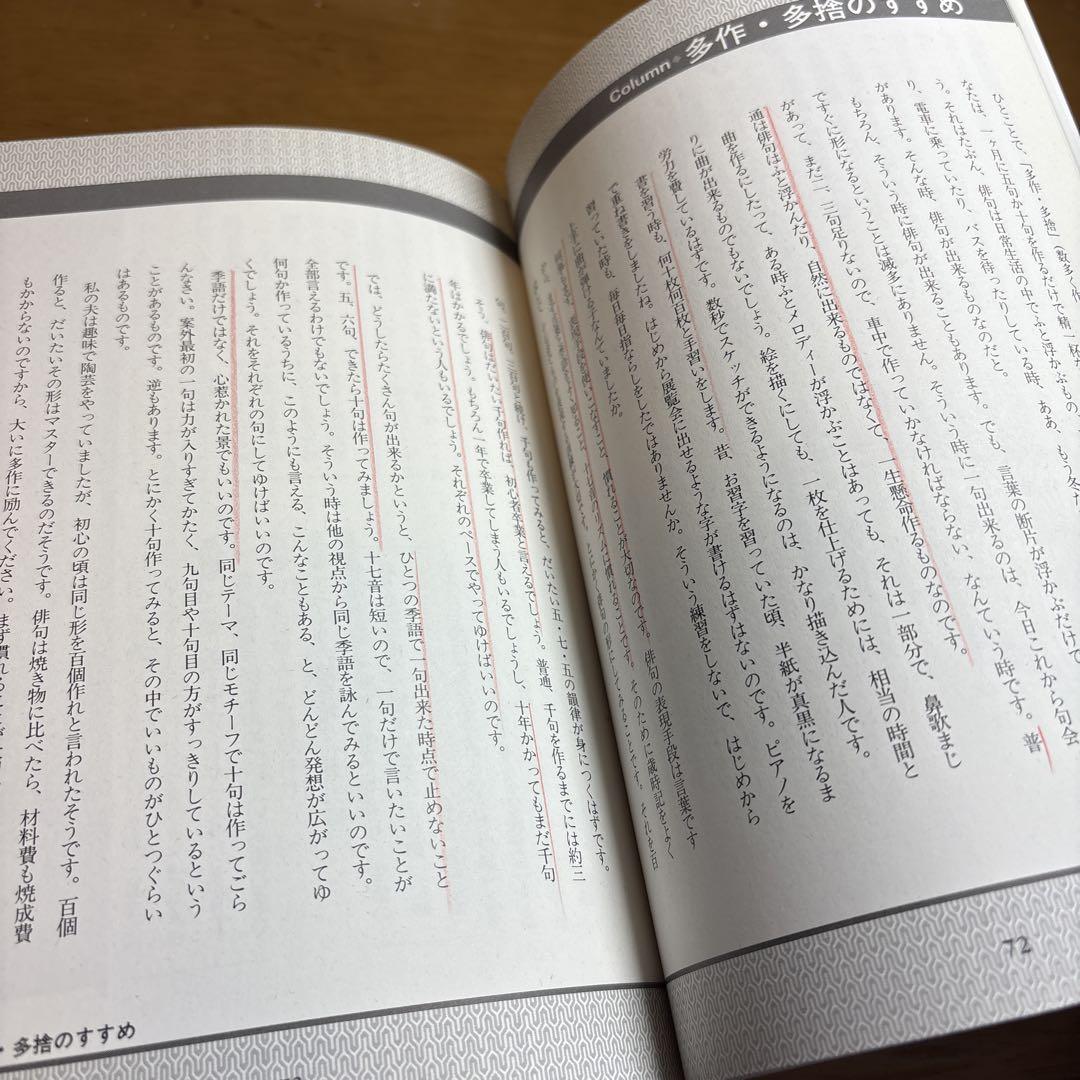 Column 多作・多捨のすすめ
ひとことで、「多作・多捨」（数多く作
なたは、一ヶ月に五句か十句を作るだけで精一杯
う。それはたぶん、俳句は日常生活の中でふと浮かぶもの
り、電車に乗っていたり、バスを待ったりしている時、ああ、もう冬だ
があります。そんな時、俳句が出来ることもあります。でも、言葉の断片が浮かぶだけで
もちろん、そういう時に俳句が出来るものなのだと。
ですぐに形になるということは滅多にありません。そういう時に一句出来るのは、今日これから句会
があって、まだ二、三句足りないので、車中で作っていかなければならない、なんていう時です。普
通は俳句はふと浮かんだり、自然に出来るものではなくて、一生懸命作るものなのです。
曲を作るにしたって、ある時ふとメロディーが浮かぶことはあっても、それは一部分で、鼻歌まじ
りに曲が出来るものでもないでしょう。絵を描くにしても、一枚を仕上げるためには、相当の時間と
労力を費しているはずです。数秒でスケッチができるようになるのは、かなり描き込んだ人です。
書を習う時も、何十枚何百枚と手習いをします。昔、お習字を習っていた頃、半紙が真黒になるま
で重ね書きをしましたね。はじめから展覧会に出せるような字が書けるはずはないのです。ピアノを
習っていた時も、毎日毎日指ならしをしたではありませんか。そういう練習をしないで、はじめから
上手に曲が弾ける子なんていましたか。
慣れることが大切なのです。俳句の表現手段は言葉です
十七音のリズムに慣れることです。そのために歳時記をよく
千句も作ってみると、だいたい五・七・五の韻律が身につくはずです。
そう、俳句はだいたい千句作れば、初心者卒業と言えるでしょう。普通、千句を作るまでには約三
年はかかるでしょう。もちろん一年で卒業してしまう人もいるでしょうし、十年かかってもまだ千句
に満たないという人もいるでしょう。それぞれのペースでやってゆけばいいのです。
では、どうしたらたくさん句が出来るかというと、ひとつの季語で一句出来た時点で止めないこと
です。五、六句、できたら十句は作ってみましょう。十七音は短いので、一句だけで言いたいことが
全部言えるわけでもないでしょう。そういう時は他の視点から同じ季語を詠んでみるといいのです。
何句か作っているうちに、このようにも言える、こんなこともある、と、どんどん発想が広がってゆ
くでしょう。それをそれぞれの句にしてゆけばいいのです。
季語だけではなく、心惹かれた景でもいいのです。同じテーマ、同じモチーフで十句は作ってごら
んなさい。案外最初の一句は力が入りすぎてかたく、九句目や十句目の方がすっきりしているという
ことがあるものです。逆もあります。とにかく十句作ってみると、その中でいいものがひとつぐらい
はあるものです。
私の夫は趣味で陶芸をやっていましたが、初心の頃は同じ形を百個作れと言われたそうです。百個
作ると、だいたいその形はマスターできるのだそうです。俳句は焼き物に比べたら、材料費も焼成費
もかからないのですから、大いに多作に励んでください。まず慣れること
72
・多捨のすすめ